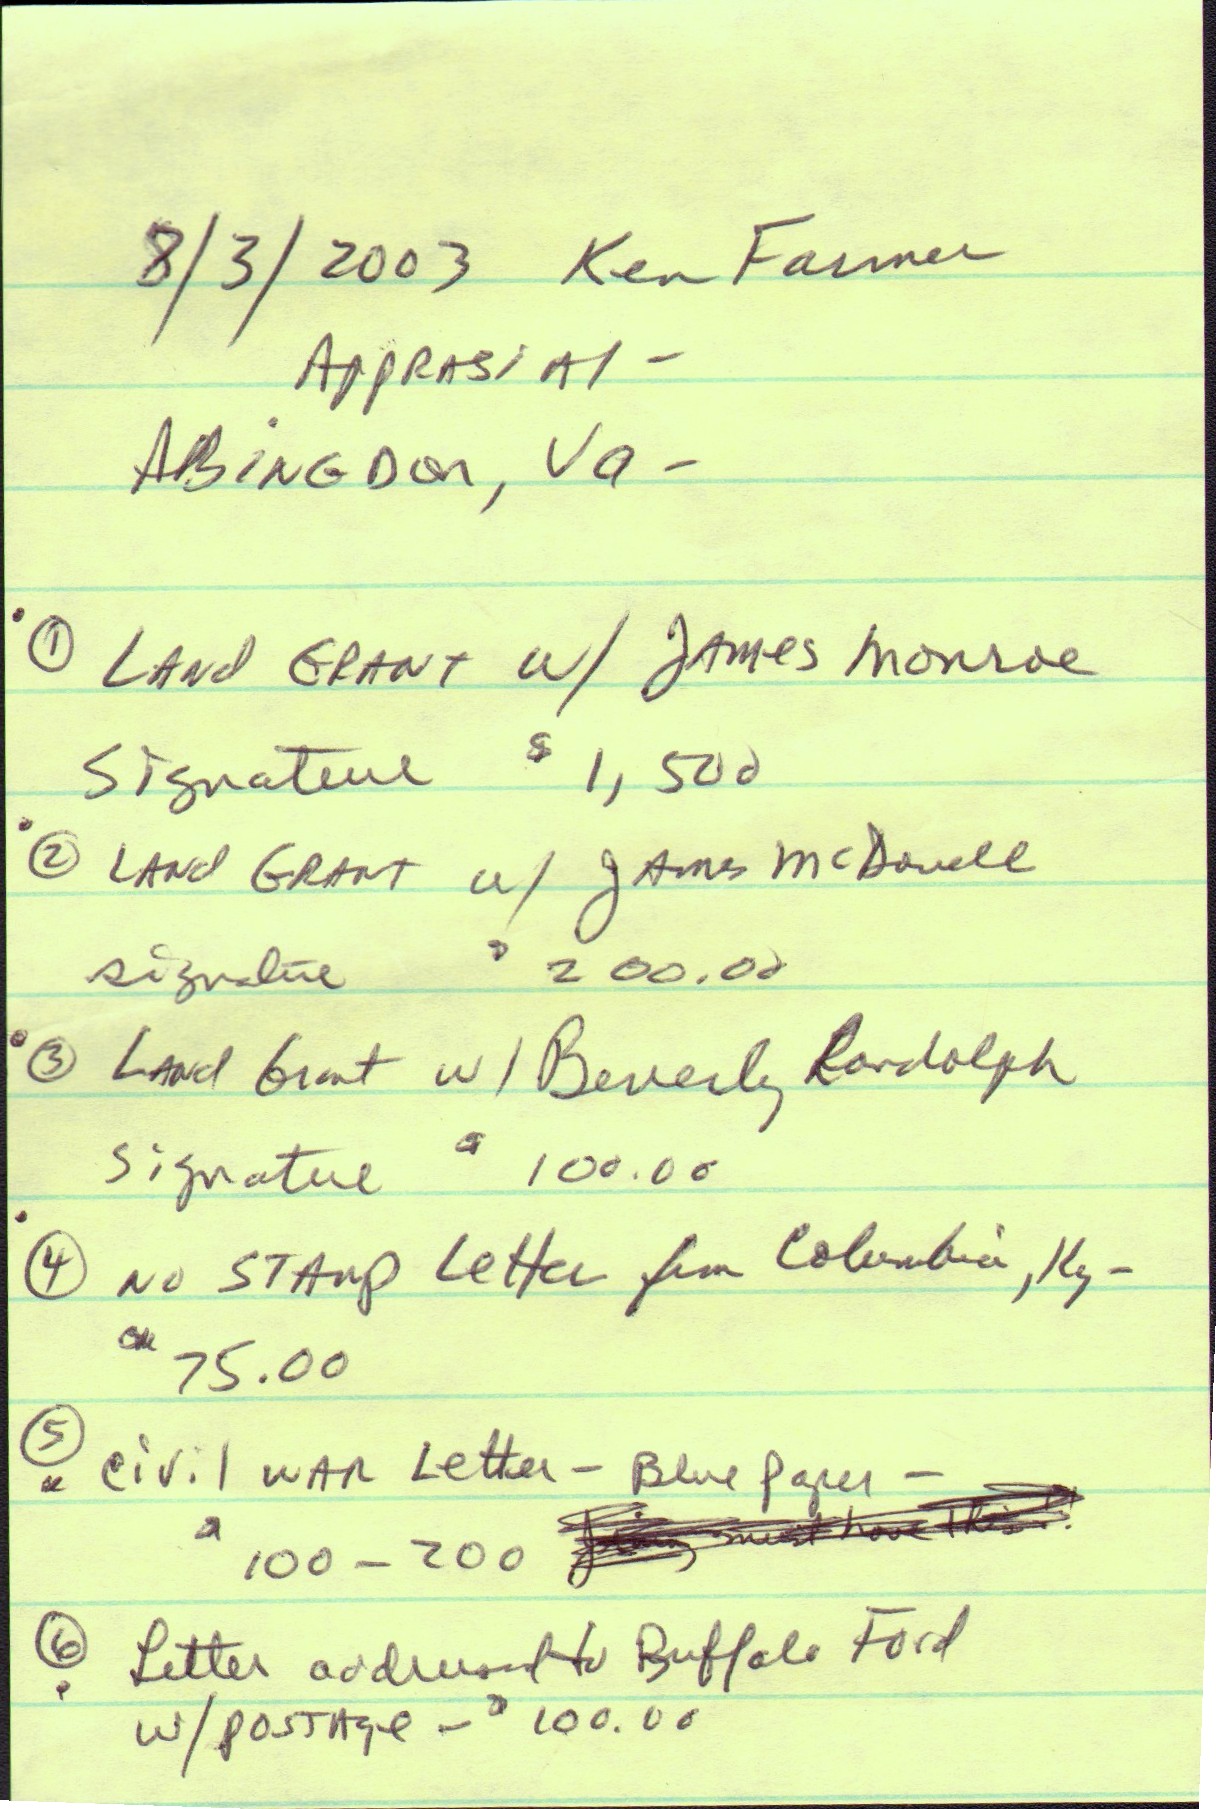 8/3/2003 Ken Farmer
APPRASIAl -
ABINGDon, Va -
① LAnd GRANT w/ JAMES Monroe
Signature $ 1,500
② LAnd GRANT w/ JAmes McDowell
signature $ 200.00
③ LAnd Grant w/ Beverly Randolph
Signature $ 100.00
④ NO STAmp Letter from Columbia, Ky -
75.00
⑤ Civil WAR Letter - Blue paper -
$ 100 - 200 must have This!!
⑥ Letter addressed to Buffalo Ford
w/ POSTAge - $ 100.00